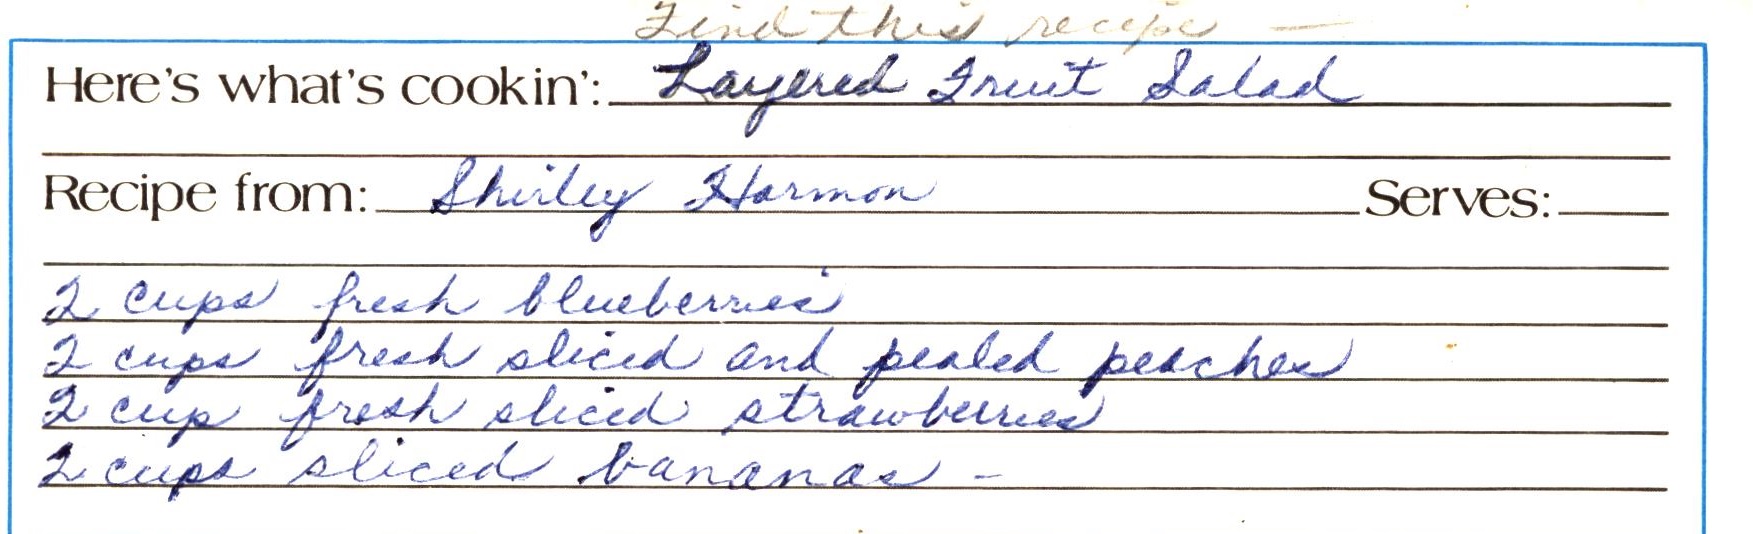 Find this recipe —
Here's what's cookin': Layered Fruit Salad
Recipe from: Shirley Harmon Serves:
2 cups fresh blueberries
2 cups fresh sliced and pealed peaches
2 cup fresh sliced strawberries
2 cups sliced bananas -